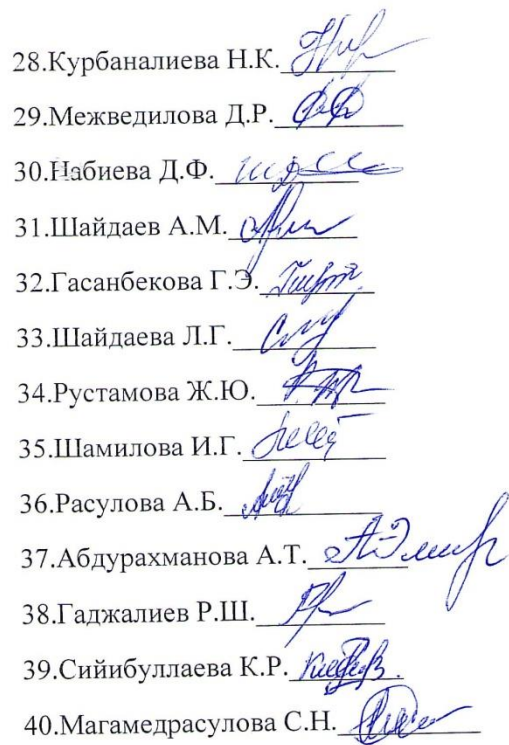 28.Курбаналиева Н.К.
29.Межведилова Д.Р.
30.Набиева Д.Ф.
31.Шайдаев А.М.
32.Гасанбекова Г.Э.
33.Шайдаева Л.Г.
34.Рустамова Ж.Ю.
35.Шамилова И.Г.
36.Расулова А.Б.
37.Абдурахманова А.Т.
38.Гаджалиев Р.Ш.
39.Сийибуллаева К.Р.
40.Магамедрасулова С.Н.